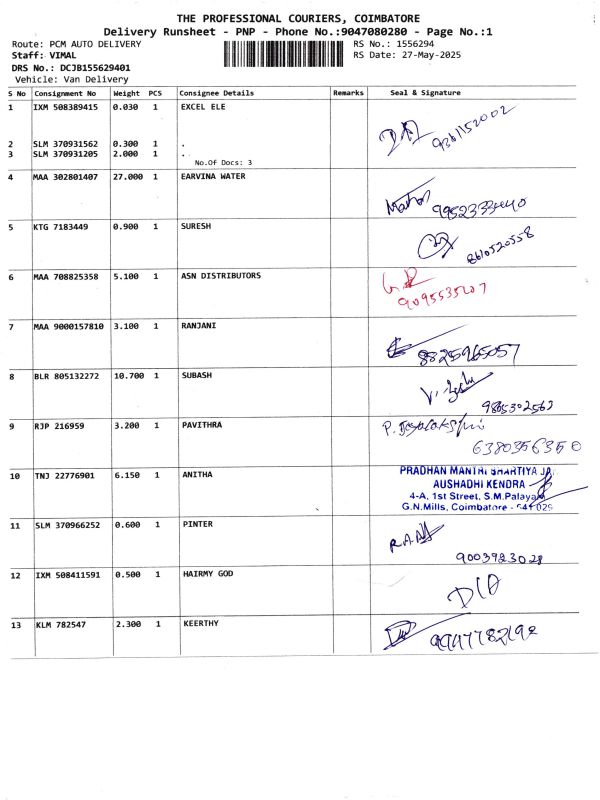 THE PROFESSIONAL COURIERS, COIMBATORE
Delivery Runsheet - PNP - Phone No.:9047080280 - Page No.:1
Route: PCM AUTO DELIVERY RS No.: 1556294
Staff: VIMAL RS Date: 27-May-2025
DRS No.: DCJB155629401
Vehicle: Van Delivery
S No Consignment No Weight PCS Consignee Details Remarks Seal & Signature
1 IXM 508389415 0.030 1 EXCEL ELE
9361152002
2 SLM 370931562 0.300 1 .
3 SLM 370931205 2.000 1 .
No.Of Docs: 3
4 MAA 302801407 27.000 1 EARVINA WATER
5 KTG 7183449 0.900 1 SURESH
8610520558
6 MAA 708825358 5.100 1 ASN DISTRIBUTORS
9095535207
7 MAA 9000157810 3.100 1 RANJANI
8825965057
8 BLR 805132272 10.700 1 SUBASH
9865302563
9 RJP 216959 3.200 1 PAVITHRA
6380356350
10 TNJ 22776901 6.150 1 ANITHA
PRADHAN MANTRI BHARTIYA JA
AUSHADHI KENDRA
4-A, 1st Street, S.M.Palayam
G.N.Mills, Coimbatore - 641 029
11 SLM 370966252 0.600 1 PINTER
9003923028
12 IXM 508411591 0.500 1 HAIRMY GOD
13 KLM 782547 2.300 1 KEERTHY
9947782192